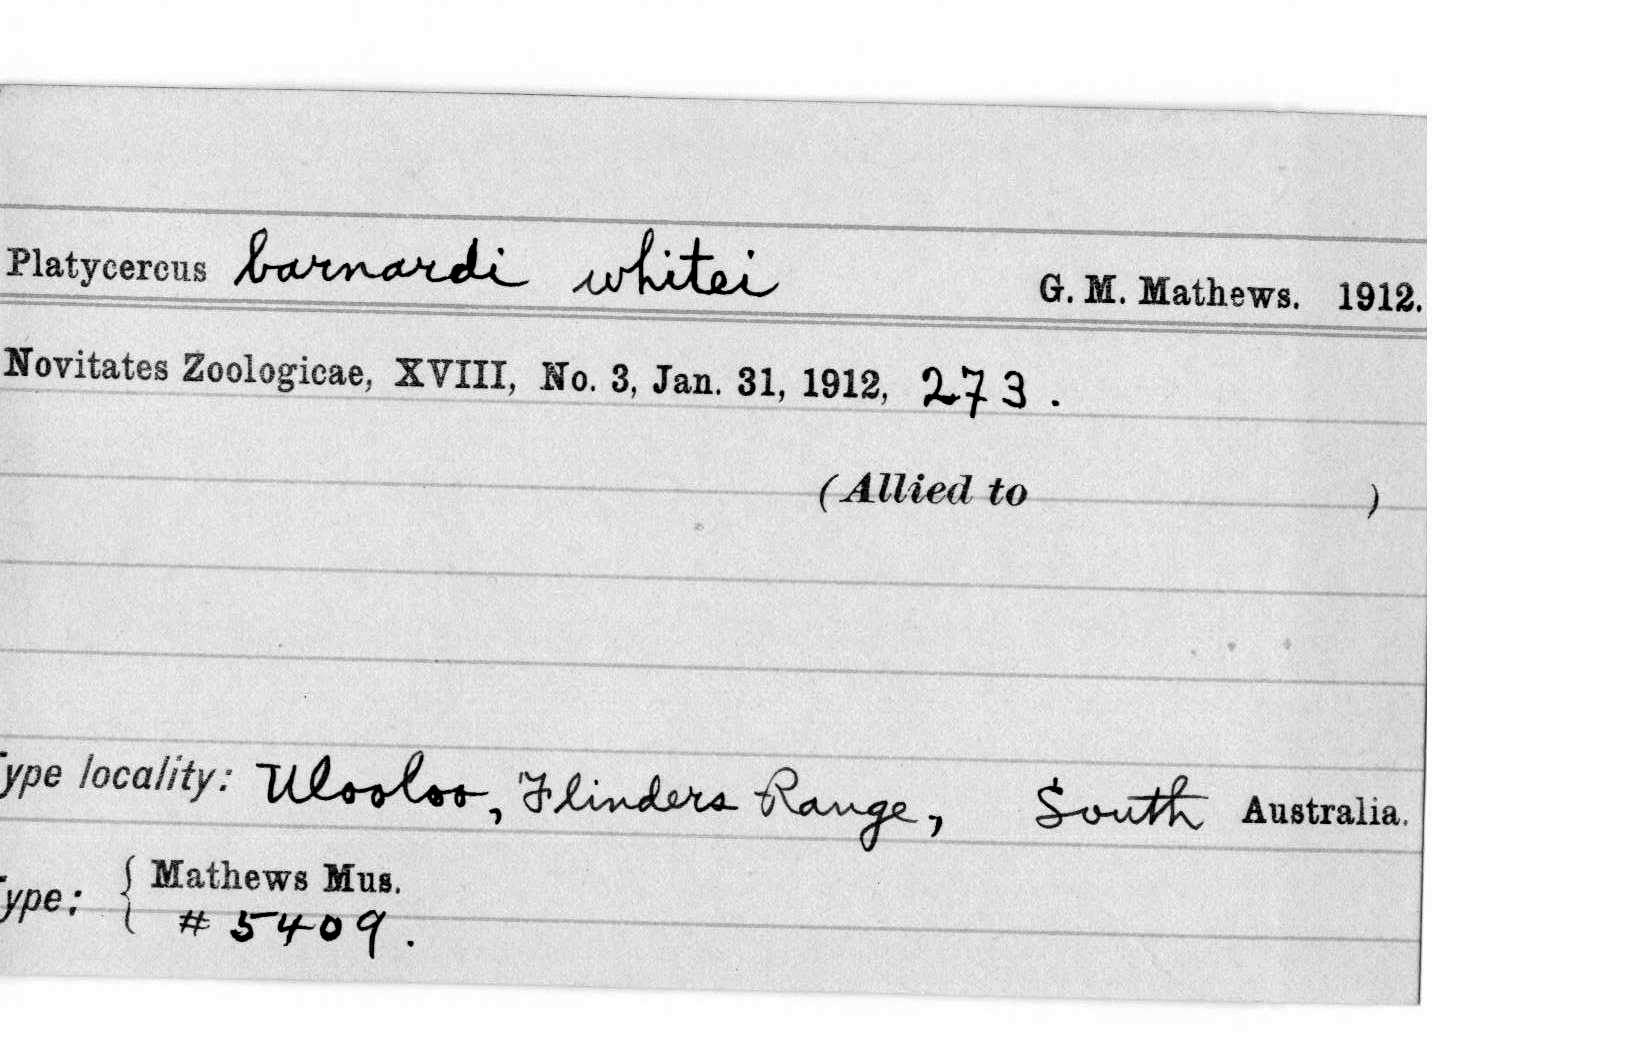 Platycercus barnardi whitei G. M. Mathews. 1912.
Novitates Zoologicae, XVIII, No. 3, Jan. 31, 1912, 273.
(Allied to )
Type locality: Ulooloo, Flinders Range, South Australia.
Type: { Mathews Mus.
# 5409.